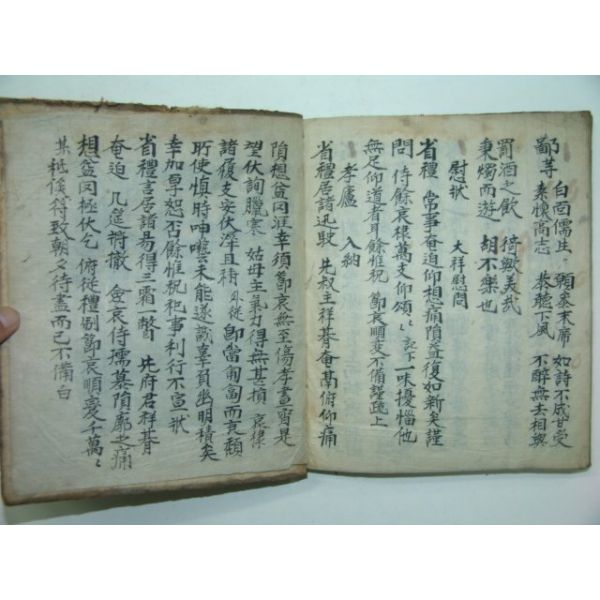 白面儒生 願忝末席 如詩不成甘受
鄙等 素懷高志 恭聽下風 不醉無去相與
罰酒之飮 猗歟美哉
秉燭而遊 胡不樂也
慰狀 大祥慰問
省禮 常事奄迫仰想痛隕益復如新矣謹
問 侍餘哀根萬支仰頌〻 記下一味擾惱他
無足仰道者耳餘惟祝 節哀順變不備謹疏上
孝廬 入納
省禮居諸迅駛 先叔主祥朞奄鬲俯仰痛
隕想益罔涯幸須節哀無至傷孝盡胃是
望伏詢臘寒 姑母主氣力得無甚損 哀棣
諸履支安伏溸且 從 卽當匍匐而哀頹
所使慎時呻囈未能遂誠辜負幽明積矣
幸加厚恕否餘惟祝祀事利行不宣狀
省禮言居諸易得三霜一瞥 先府君祥朞
奄迫 几筵將撤 僉哀侍孺慕隕廓之痛
想益罔極伏乞 俯從禮制節哀順變千萬〻
某祗俟符致朝夕待盡而已不備白